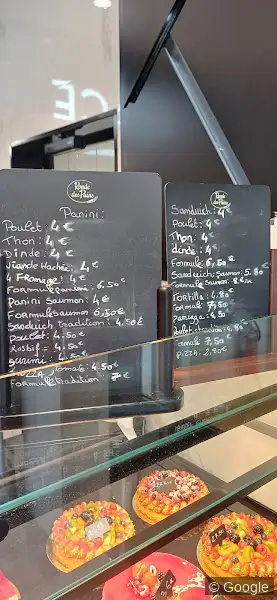 CÉ
Ronde
des Pains
Panini:
Poulet: 4€
Thon: 4€
Dinde: 4€
Viande Hachée: 4€
4 Fromage: 4€
Formule panini: 6.50€
Panini Saumon: 4€
Formule saumon 6,50€
Sandwich tradition: 4.50€
Poulet: 4.50€
Rostif = 4.50€
Surimi = 4.50€
Pizza Tomate: 4.50€
Formule tradition: 7€
Ronde
des Pains
Sandwich: 4€
Poulet: 4€
Thon: 4€
dinde: 4€
Formule: 6,50€
Sandwich Saumon: 5.80€
Formule Saumon: 8
Tortilla: 4.80
Formule: 7,50
Panizza: 4.50
Poulet 4.80
Formule: 7,50
Pizza: 2,80€
© Google